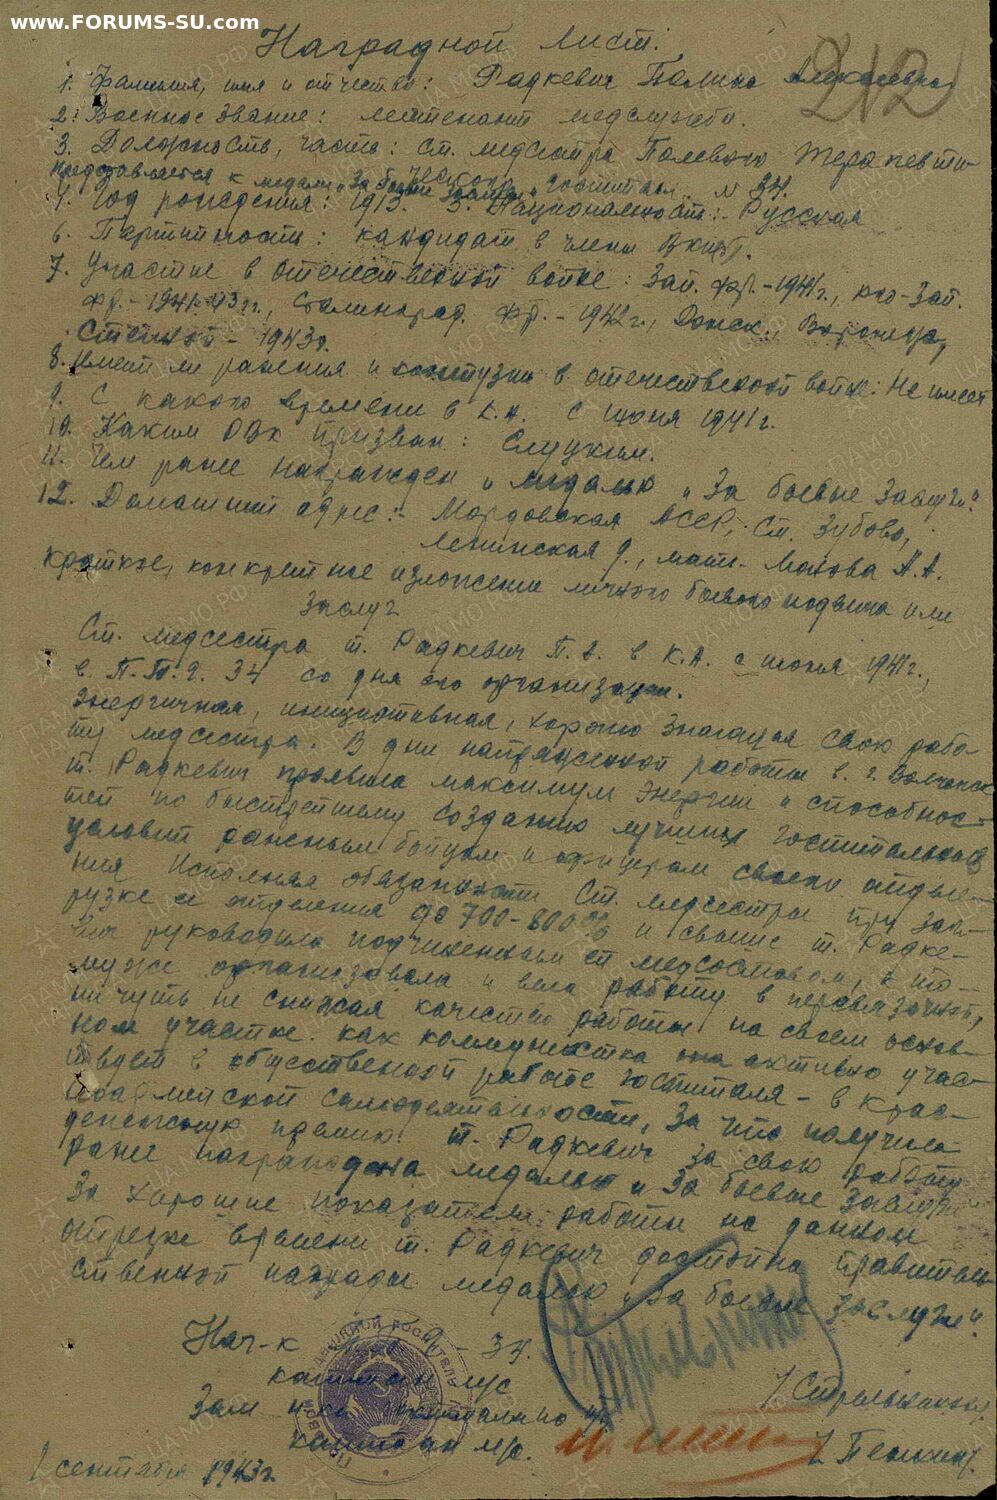 www.FORUMS-SU.com
212
Наградной лист.
1. Фамилия, имя и отчество: Радкевич Полина Алексеевна
2. Военное звание: лейтенант медслужбы.
3. Должность, часть: ст. медсестра Полевого Терапевти-
ческого госпиталя № 34.
Представляется к медали „За боевые заслуги"
4. Год рождения: 1913. 5. Национальность: Русская
6. Партийность: кандидат в члены ВКП(б).
7. Участие в отечественной войне: Зап. фр. - 1941г., юго-Зап.
фр. - 1941-43гг., Сталинград. фр. - 1942г., Донск., Воронеж.,
Степной - 1943г.
8. Имеет ли ранения и контузии в отечественной войне: Не имеет
9. С какого времени в К.А. с июня 1941г.
10. Каким РВК призван: Слуцким.
11. Чем ранее награжден „ медалью „За боевые заслуги".
12. Домашний адрес: Мордовская АССР, ст. Зубово,
Ленинская д., мать - А.А.
Краткое, конкретное изложение личного боевого подвига или
заслуг
Ст. медсестра т. Радкевич П.А. в К.А. с июня 1941г.,
в П.Т.Г. 34 со дня его организации.
Энергичная, инициативная, хорошо знающая свою рабо-
ту медсестра. В дни напряженной работы в г. Волчанск
т. Радкевич проявила максимум энергии и способнос-
тей по быстрейшему созданию лучших госпитальных
условий раненым бойцам и офицерам своего отделе-
ния Исполняя обязанности Ст. медсестры при заг-
рузке ее отделения до 700-800% и свыше т. Радке-
вич руководила подчиненным ей медсоставом, к то-
му же организовала и вела работу в перевязочной,
ничуть не снижая качество работы на своем основ-
ном участке. как коммунистка она активно учас-
твует в общественной работе госпиталя - в крас-
ноармейской самодеятельности, за что получила
денежную премию. т. Радкевич за свою работу
ранее награждена медалью „За боевые заслуги"
За хорошие показатели работы на данном
отрезке времени т. Радкевич достойна правитель-
ственной награды медалью „За боевые заслуги".
Нач-к 34.
капитан м/с
Зам н-ка госпиталя по п/ч
капитан м/с.
1 сентября 1943г.